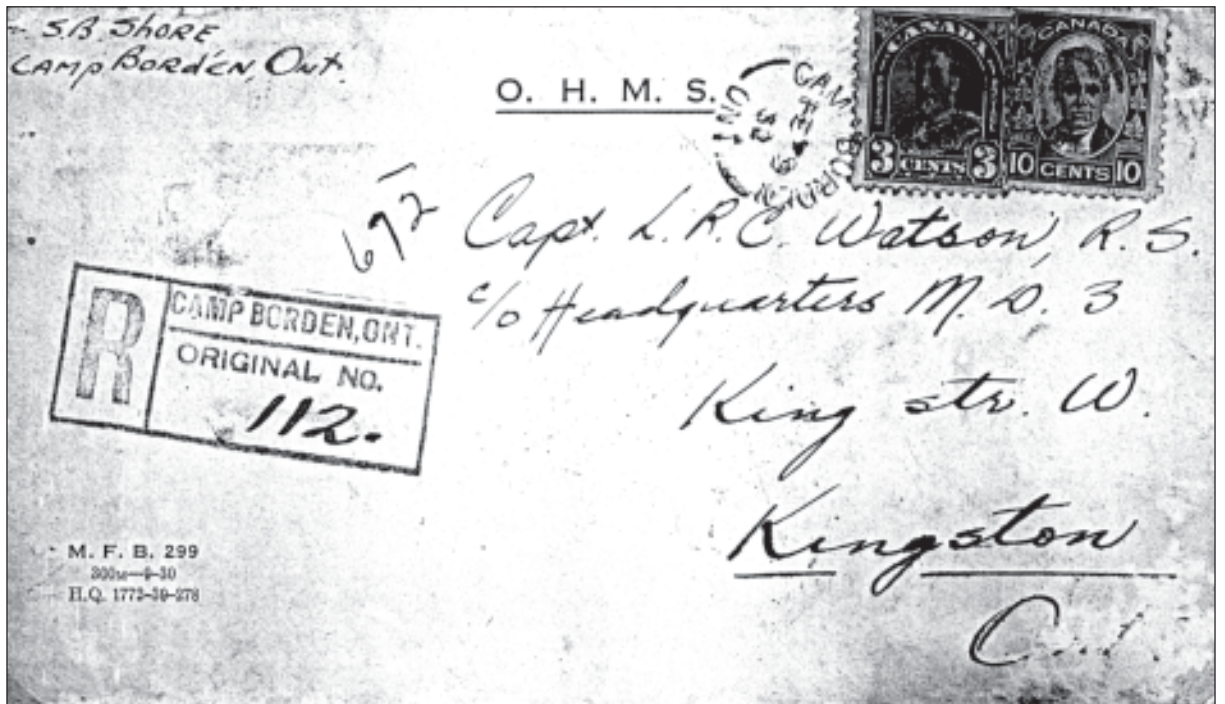 S.B. SHORE
CAMP BORDEN, Ont.
O. H. M. S.
CANADA
3 CENTS 3
CANADA
10 CENTS 10
CAMP BORDEN
ONT
692
Capt. L. R. C. Watson, R. S.
c/o Headquarters M. D. 3
King str. W.
Kingston
R
CAMP BORDEN, ONT.
ORIGINAL NO.
112.
M. F. B. 299
300M—9-30
H.Q. 1772-39-278